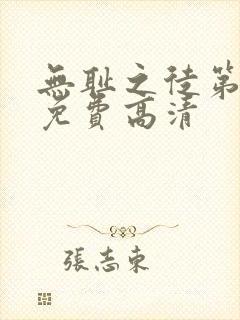 無耻之徒第
免費高清
張志東